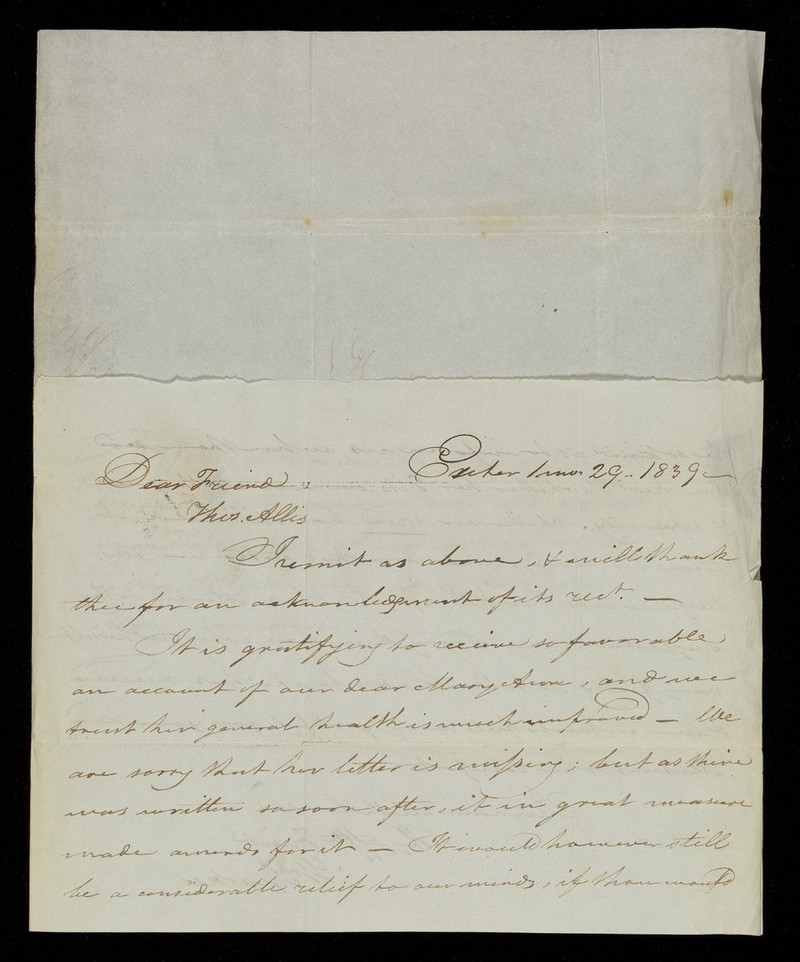 Exeter 1 mo. 29 - 1839 -
Dear Friend
Thos. Allis
I remit as above, & will thank
thee for an acknowledgment of its rect. —
It is gratifying to receive so favorable
an account of our dear Mary Anne, and we
trust her general health is much improved — We
are sorry that her letter is missing; but as thine
was written so soon after, it in great measure
made amends for it — It would however still
be a considerable relief to our minds, if thou would